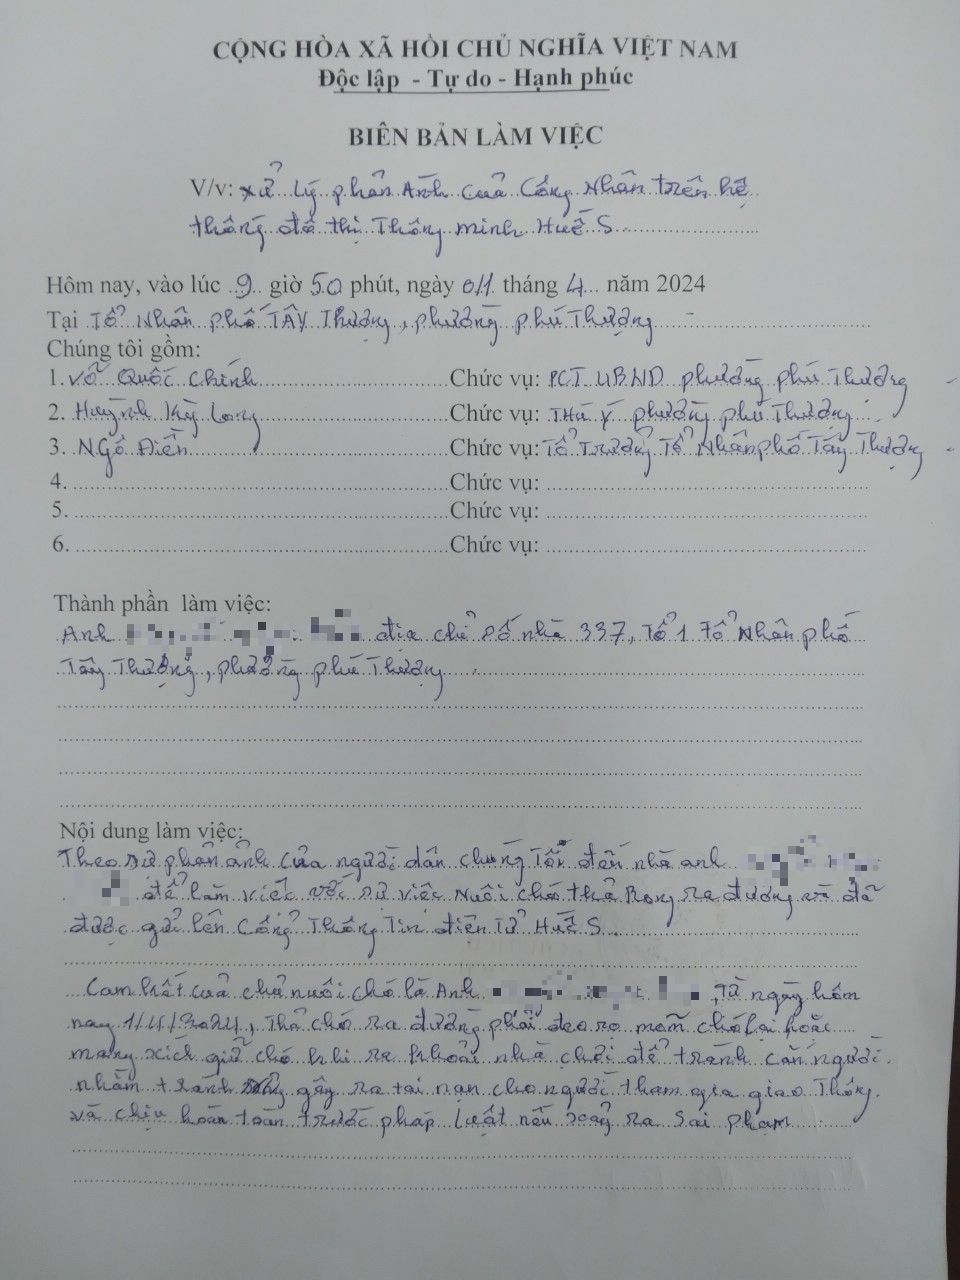 CỘNG HÒA XÃ HỘI CHỦ NGHĨA VIỆT NAM
Độc lập - Tự do - Hạnh phúc
BIÊN BẢN LÀM VIỆC
V/v: xử Lý phản Ánh của Công Nhân trên hệ
thống đô thị Thông minh Huế S
Hôm nay, vào lúc 9 giờ 50 phút, ngày 01 tháng 4 năm 2024
Tại Tổ Nhân phố TÂY Thượng, phường phú Thượng
Chúng tôi gồm:
1. Võ Quốc Chính Chức vụ: PCT UBND phường phú Thượng
2. Huỳnh Kỳ Long Chức vụ: Thú Y phường phú Thượng
3. NGÔ Điền Chức vụ: Tổ Trưởng Tổ Nhân phố Tây Thượng
4. Chức vụ:
5. Chức vụ:
6. Chức vụ:
Thành phần làm việc:
Anh địa chỉ Số nhà 337, Tổ 1 Tổ Nhân phố
Tây Thượng, phường phú Thượng
Nội dung làm việc:
Theo sự phản ánh của người dân chúng Tôi đến nhà anh
để làm việc với sự việc Nuôi chó thả Rong ra đường và đã
được gửi lên Cổng Thông Tin điện Tử Huế S
Cam kết của chủ nuôi chó là Anh , Từ ngày hôm
nay 1/4/2024, Thả chó ra đường phải đeo rọ mõm chó lại hoặc
mang xích giữ chó khi ra khỏi nhà chơi để tránh cắn người
nhằm tránh gây ra tai nạn cho người tham gia giao Thông
và chịu hoàn toàn trước pháp luật nếu xảy ra Sai phạm